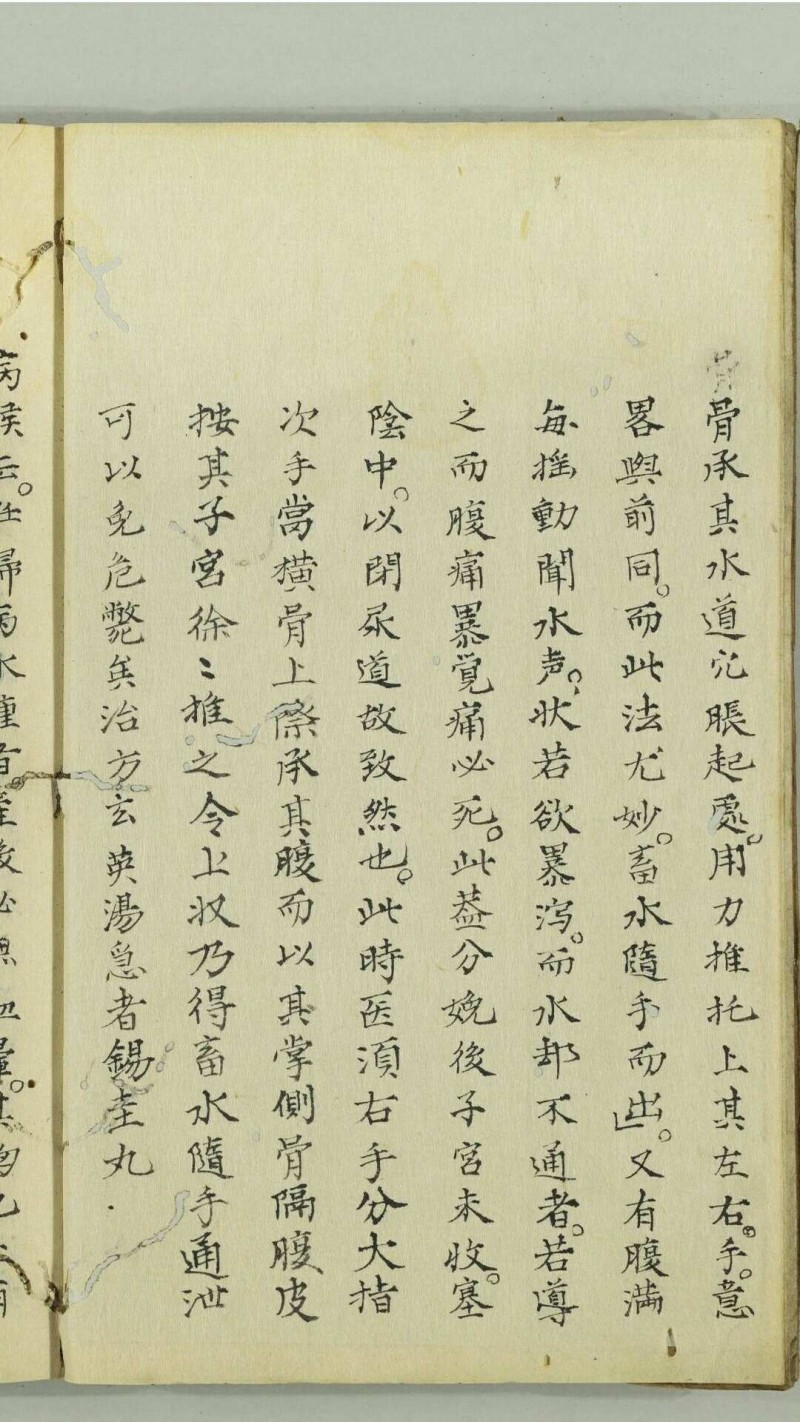 骨承其水道穴脹起處。用力推托上其左右。手。意
畧與前同。而此法尤妙。畜水隨手而出」。又有腹満
每揺動聞水声。状若欲暴泻。而水却不通者。若導
之而腹痛暴覚痛必死。此葢分娩後子宮未收。塞
陰中。以閉尿道故致然也。此時医須右手分大指
次手當横骨上際承其腹而以其掌側骨隔腹皮
按其子宮徐〻推之令上収乃得畜水隨手通泄
可以免危斃矣治方玄英湯急者錫圭丸